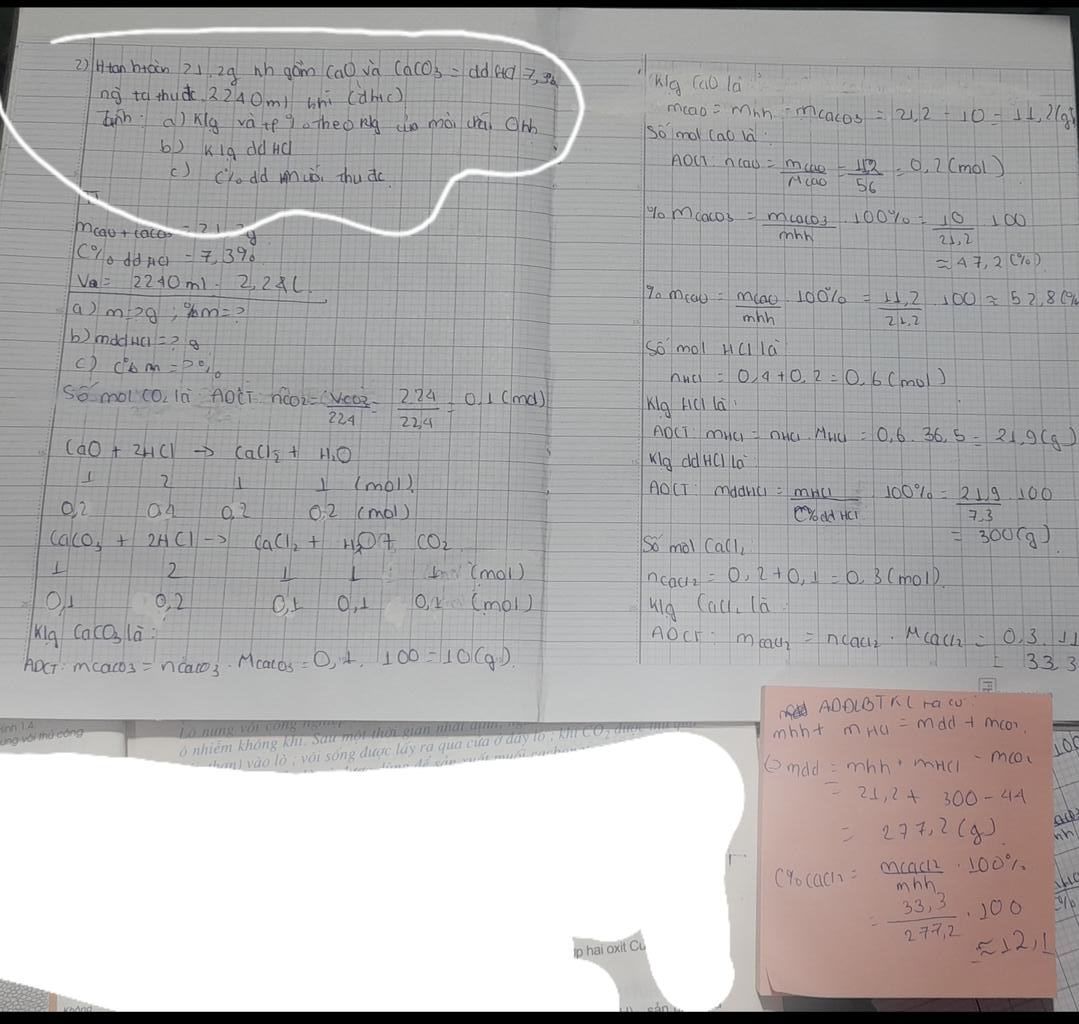 2) H tan h toàn 21,2g hh gồm CaO và CaCO3 = dd HCl 7,3%
ng ta thu đc 2240ml khí (đktc)
Tính: a) Klg và tp % theo klg của mỗi chất Ohh
b) Klg dd HCl
c) C% dd muối thu đc
mCaO + CaCO3 = 21,2g
C% dd HCl = 7,3%
2240ml = 2,24L
a) m=?g ; %m=?
b) mddHCl = ? g
c) C% m = ?%
Số mol CO2 là: ADCT: nCO2 = VCO2/22,4 = 2,24/22,4 = 0,1 (mol)
CaO + 2HCl → CaCl2 + H2O
1 2 1 1 (mol)
0,2 0,4 0,2 0,2 (mol)
CaCO3 + 2HCl → CaCl2 + H2O + CO2
1 2 1 1 1 (mol)
0,1 0,2 0,1 0,1 0,1 (mol)
Klg CaCO3 là:
ADCT: mCaCO3 = nCaCO3 . MCaCO3 = 0,1 . 100 = 10(g).
Klg CaO là
mCaO = mhh - mCaCO3 = 21,2 - 10 = 11,2(g)
Số mol CaO là:
ADCT: nCaO = mCaO/MCaO = 11,2/56 = 0,2 (mol)
% mCaCO3 = mCaCO3/mhh . 100% = 10/21,2 . 100
≈ 47,2 (%)
% mCaO = mCaO/mhh . 100% = 11,2/21,2 . 100 ≈ 52,8 (%
Số mol HCl là
nHCl = 0,4 + 0,2 = 0,6 (mol)
Klg HCl là:
ADCT: mHCl = nHCl . MHCl = 0,6 . 36,5 = 21,9 (g)
Klg ddHCl là:
ADCT: mddHCl = mHCl/C%ddHCl . 100% = 21,9/7,3 . 100
= 300(g).
Số mol CaCl2
nCaCl2 = 0,2 + 0,1 = 0,3 (mol).
Klg CaCl2 là:
ADCT: mCaCl2 = nCaCl2 . MCaCl2 = 0,3 . 11
= 33,3
ADĐLBTKL ta có:
mhh + mHCl = mdd + mCO2
mdd = mhh + mHCl - mCO2
= 21,2 + 300 - 44
= 277,2 (g)
C%CaCl2 = mCaCl2/mhh . 100%
= 33,3/277,2 . 100
≈ 12,1
ình 1.4.
ung vôi thủ công
Lò nung vôi công nghiệp
ô nhiễm không khí. Sau một thời gian nhất định,
than) vào lò ; vôi sống được lấy ra qua cửa ở đáy lò ; khí CO2 được thu qua
p hai oxit Cu